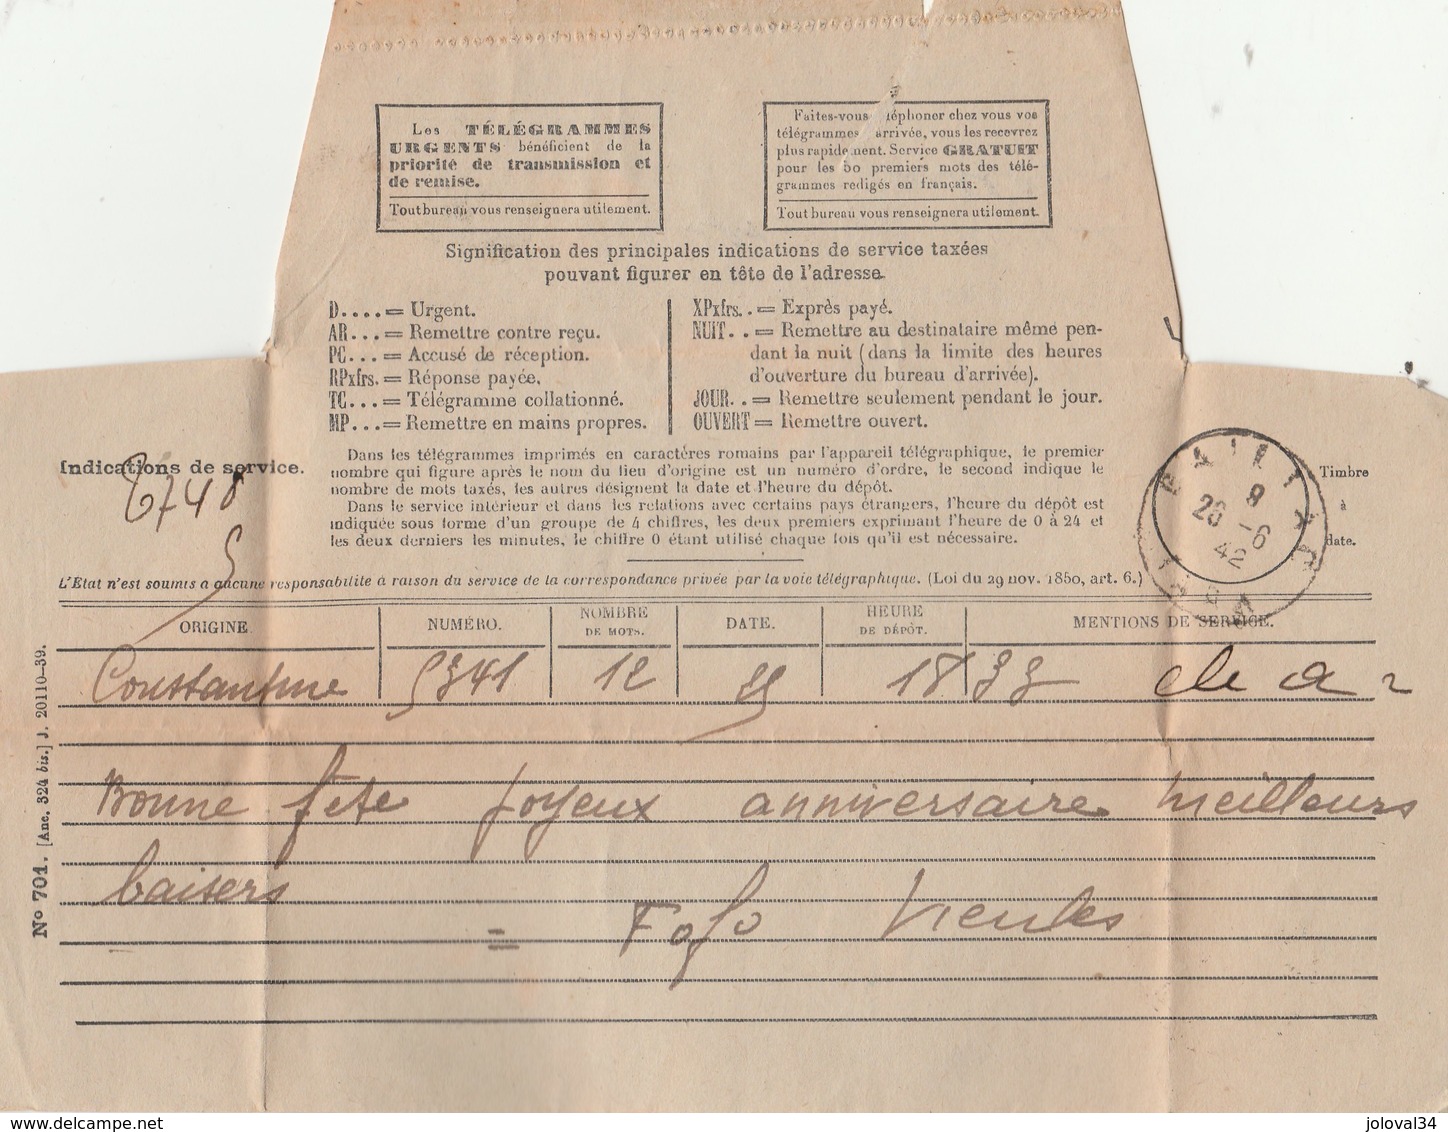 Les TÉLÉGRAMMES
URGENTS bénéficient de la
priorité de transmission et
de remise.
Tout bureau vous renseignera utilement.
Faites-vous téléphoner chez vous vos
télégrammes arrivée, vous les recevrez
plus rapidement. Service GRATUIT
pour les 50 premiers mots des télé-
grammes rédigés en français.
Tout bureau vous renseignera utilement.
Signification des principales indications de service taxées
pouvant figurer en tête de l'adresse.
D.... = Urgent.
AR... = Remettre contre reçu.
PC... = Accusé de réception.
RPxfrs. = Réponse payée.
TC... = Télégramme collationné.
MP... = Remettre en mains propres.
XPxfrs.. = Exprès payé.
NUIT.. = Remettre au destinataire même pen-
dant la nuit (dans la limite des heures
d'ouverture du bureau d'arrivée).
JOUR.. = Remettre seulement pendant le jour.
OUVERT = Remettre ouvert.
Dans les télégrammes imprimés en caractères romains par l'appareil télégraphique, le premier
nombre qui figure après le nom du lieu d'origine est un numéro d'ordre, le second indique le
nombre de mots taxés, les autres désignent la date et l'heure du dépôt.
Dans le service intérieur et dans les relations avec certains pays étrangers, l'heure du dépôt est
indiquée sous forme d'un groupe de 4 chiffres, les deux premiers exprimant l'heure de 0 à 24 et
les deux derniers les minutes, le chiffre 0 étant utilisé chaque fois qu'il est nécessaire.
Indications de service.
Timbre
à
date.
9
26 -6
42
L'État n'est soumis à aucune responsabilité à raison du service de la correspondance privée par la voie télégraphique. (Loi du 29 nov. 1850, art. 6.)
ORIGINE. NUMÉRO. NOMBRE DE MOTS. DATE. HEURE DE DÉPÔT. MENTIONS DE SERVICE.
Constantine 5341 12 25 18 33
Bonne fete joyeux anniversaire meilleurs
baisers
= Fofo
N° 701. [Anc. 324 bis.] J. 20110-39.
www.delcampe.net
joloval34